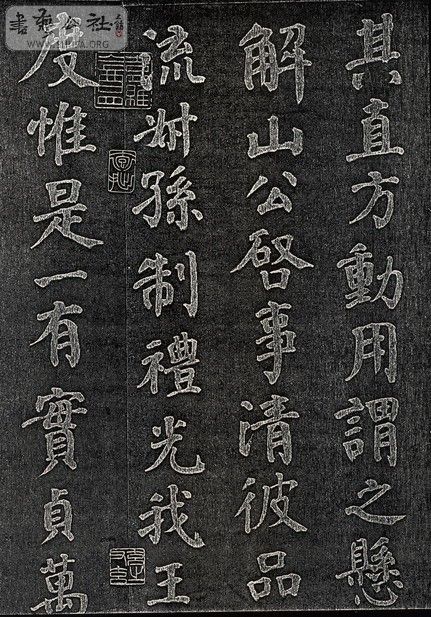 其直方動用謂之懸
解山公啓事清彼品
流叔孫制禮光我王
度惟是一有實貞萬
書藝公社
WWW.SHUFA.ORG